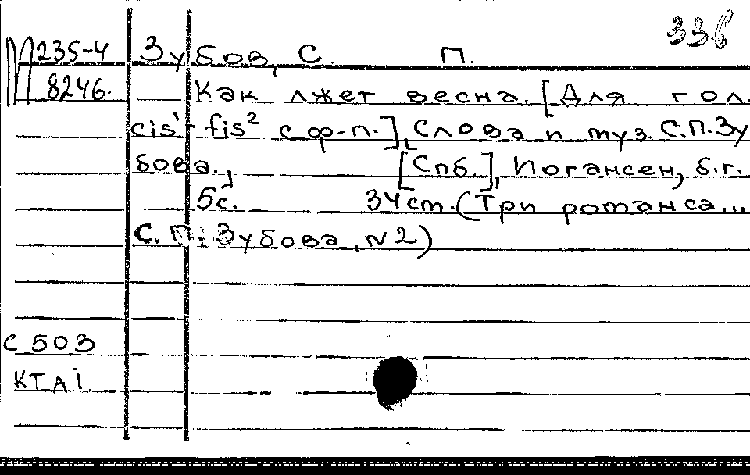 336
М235-4 Зубов, С. П.
8246. Как лжет весна. [Для гол
cis¹- fis² с ф-п.], Слова и муз. С.П.Зу
бова., [Спб.], Иогансен, б.г.
5с. 34 cm. (Три романса...
С. П. Зубова, N2)
С 503
КТАI